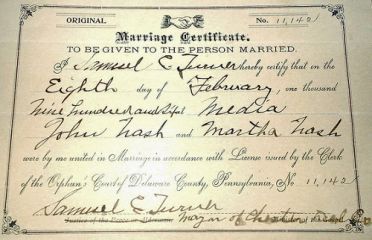 ORIGINAL No. 11,142
Marriage Certificate.
TO BE GIVEN TO THE PERSON MARRIED.
I Samuel E Turner hereby certify that on the
Eighth day of February, one thousand
nine hundred and Media
John Nash and Martha Nash
were by me united in Marriage in accordance with License issued by the Clerk
of the Orphan's Court of Delaware County, Pennsylvania, No. 11,142
Samuel E Turner
Justice of the Peace or Alderman, Mayor of Chester